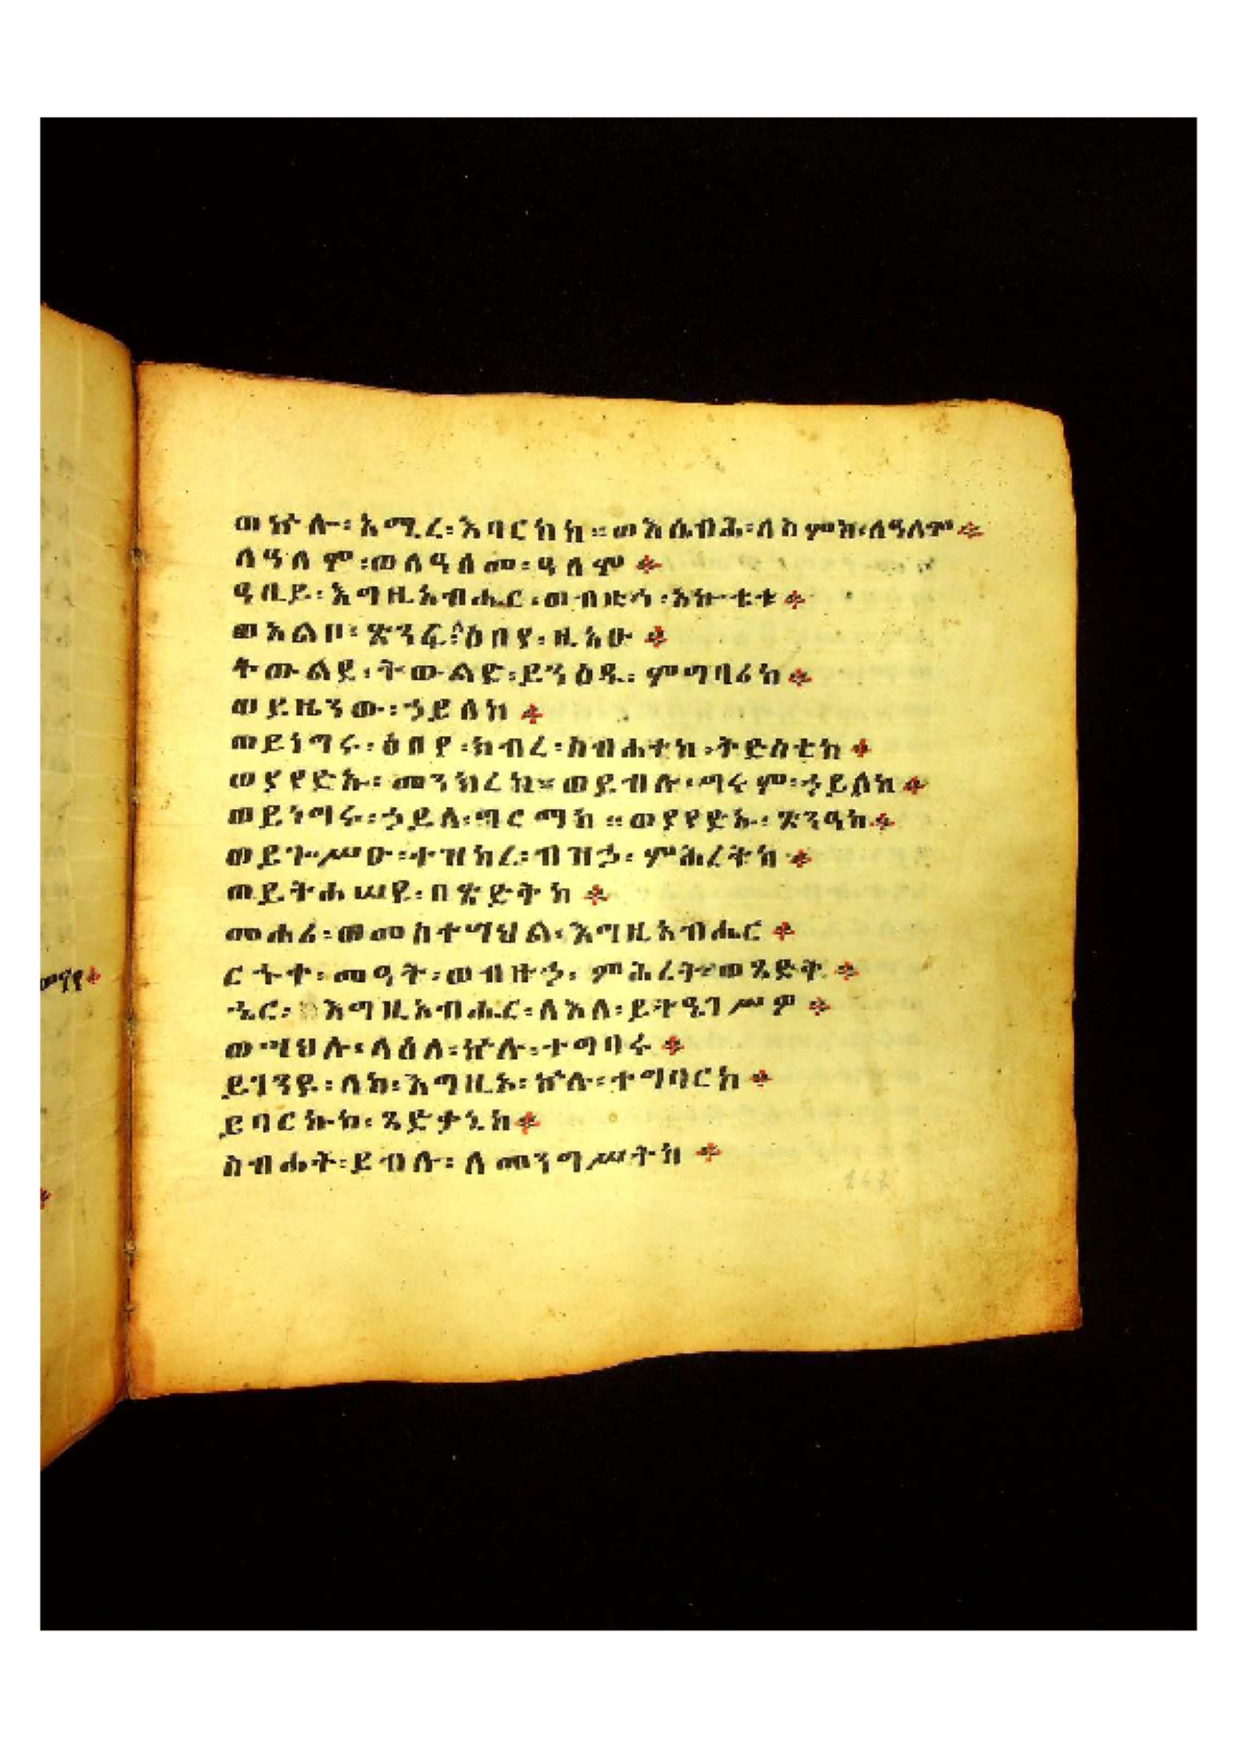 መኖየ፨
ወኵሉ፡አሚረ፡እባርከከ።ወእሴብሕ፡ለስምከ፡ለዓለም፨
ለዓለም፡ወለዓለመ፡ዓለም፨
ዓቢይ፡እግዚአብሔር፡ወብዙኅ፡አኰቴቱ፨
ወአልቦ፡ጽንፈ፡ዕበየ፡ዚአሁ፨
ትውልደ፡ትውልድ፡ይንዕዱ፡ምግባሪከ፨
ወይዜንው፡ኀይለከ፨
ወይነግሩ፡ዕበየ፡ክብረ፡ስብሐቲከ፡ቅድስቲከ፨
ወያየድኡ፡መንክረከ።ወይብሉ፡ግሩም፡ኀይለከ፨
ወይነግሩ፡ኃይለ፡ግርማከ።ወያየድኡ፡ጽንዓከ፨
ወይጐሥዑ፡ተዝከረ፡ብዝኃ፡ምሕረትከ፨
ወይትሐሠዩ፡በጽድቅከ፨
መሐሪ፡ወመስተሣህል፡እግዚአብሔር፨
ርኁቀ፡መዓት፡ወብዙኃ፡ምሕረት።ወጻድቅ፨
ኄር፡እግዚአብሔር፡ለእለ፡ይትዔገሥዎ፨
ወሣህሉ፡ላዕለ፡ኵሉ፡ተግባሩ፨
ይገንዩ፡ለከ፡እግዚኦ፡ኵሉ፡ተግባርከ፨
ይባርኩከ፡ጻድቃኒከ፨
ስብሐት፡ይብሉ፡ለመንግሥትከ፨
167